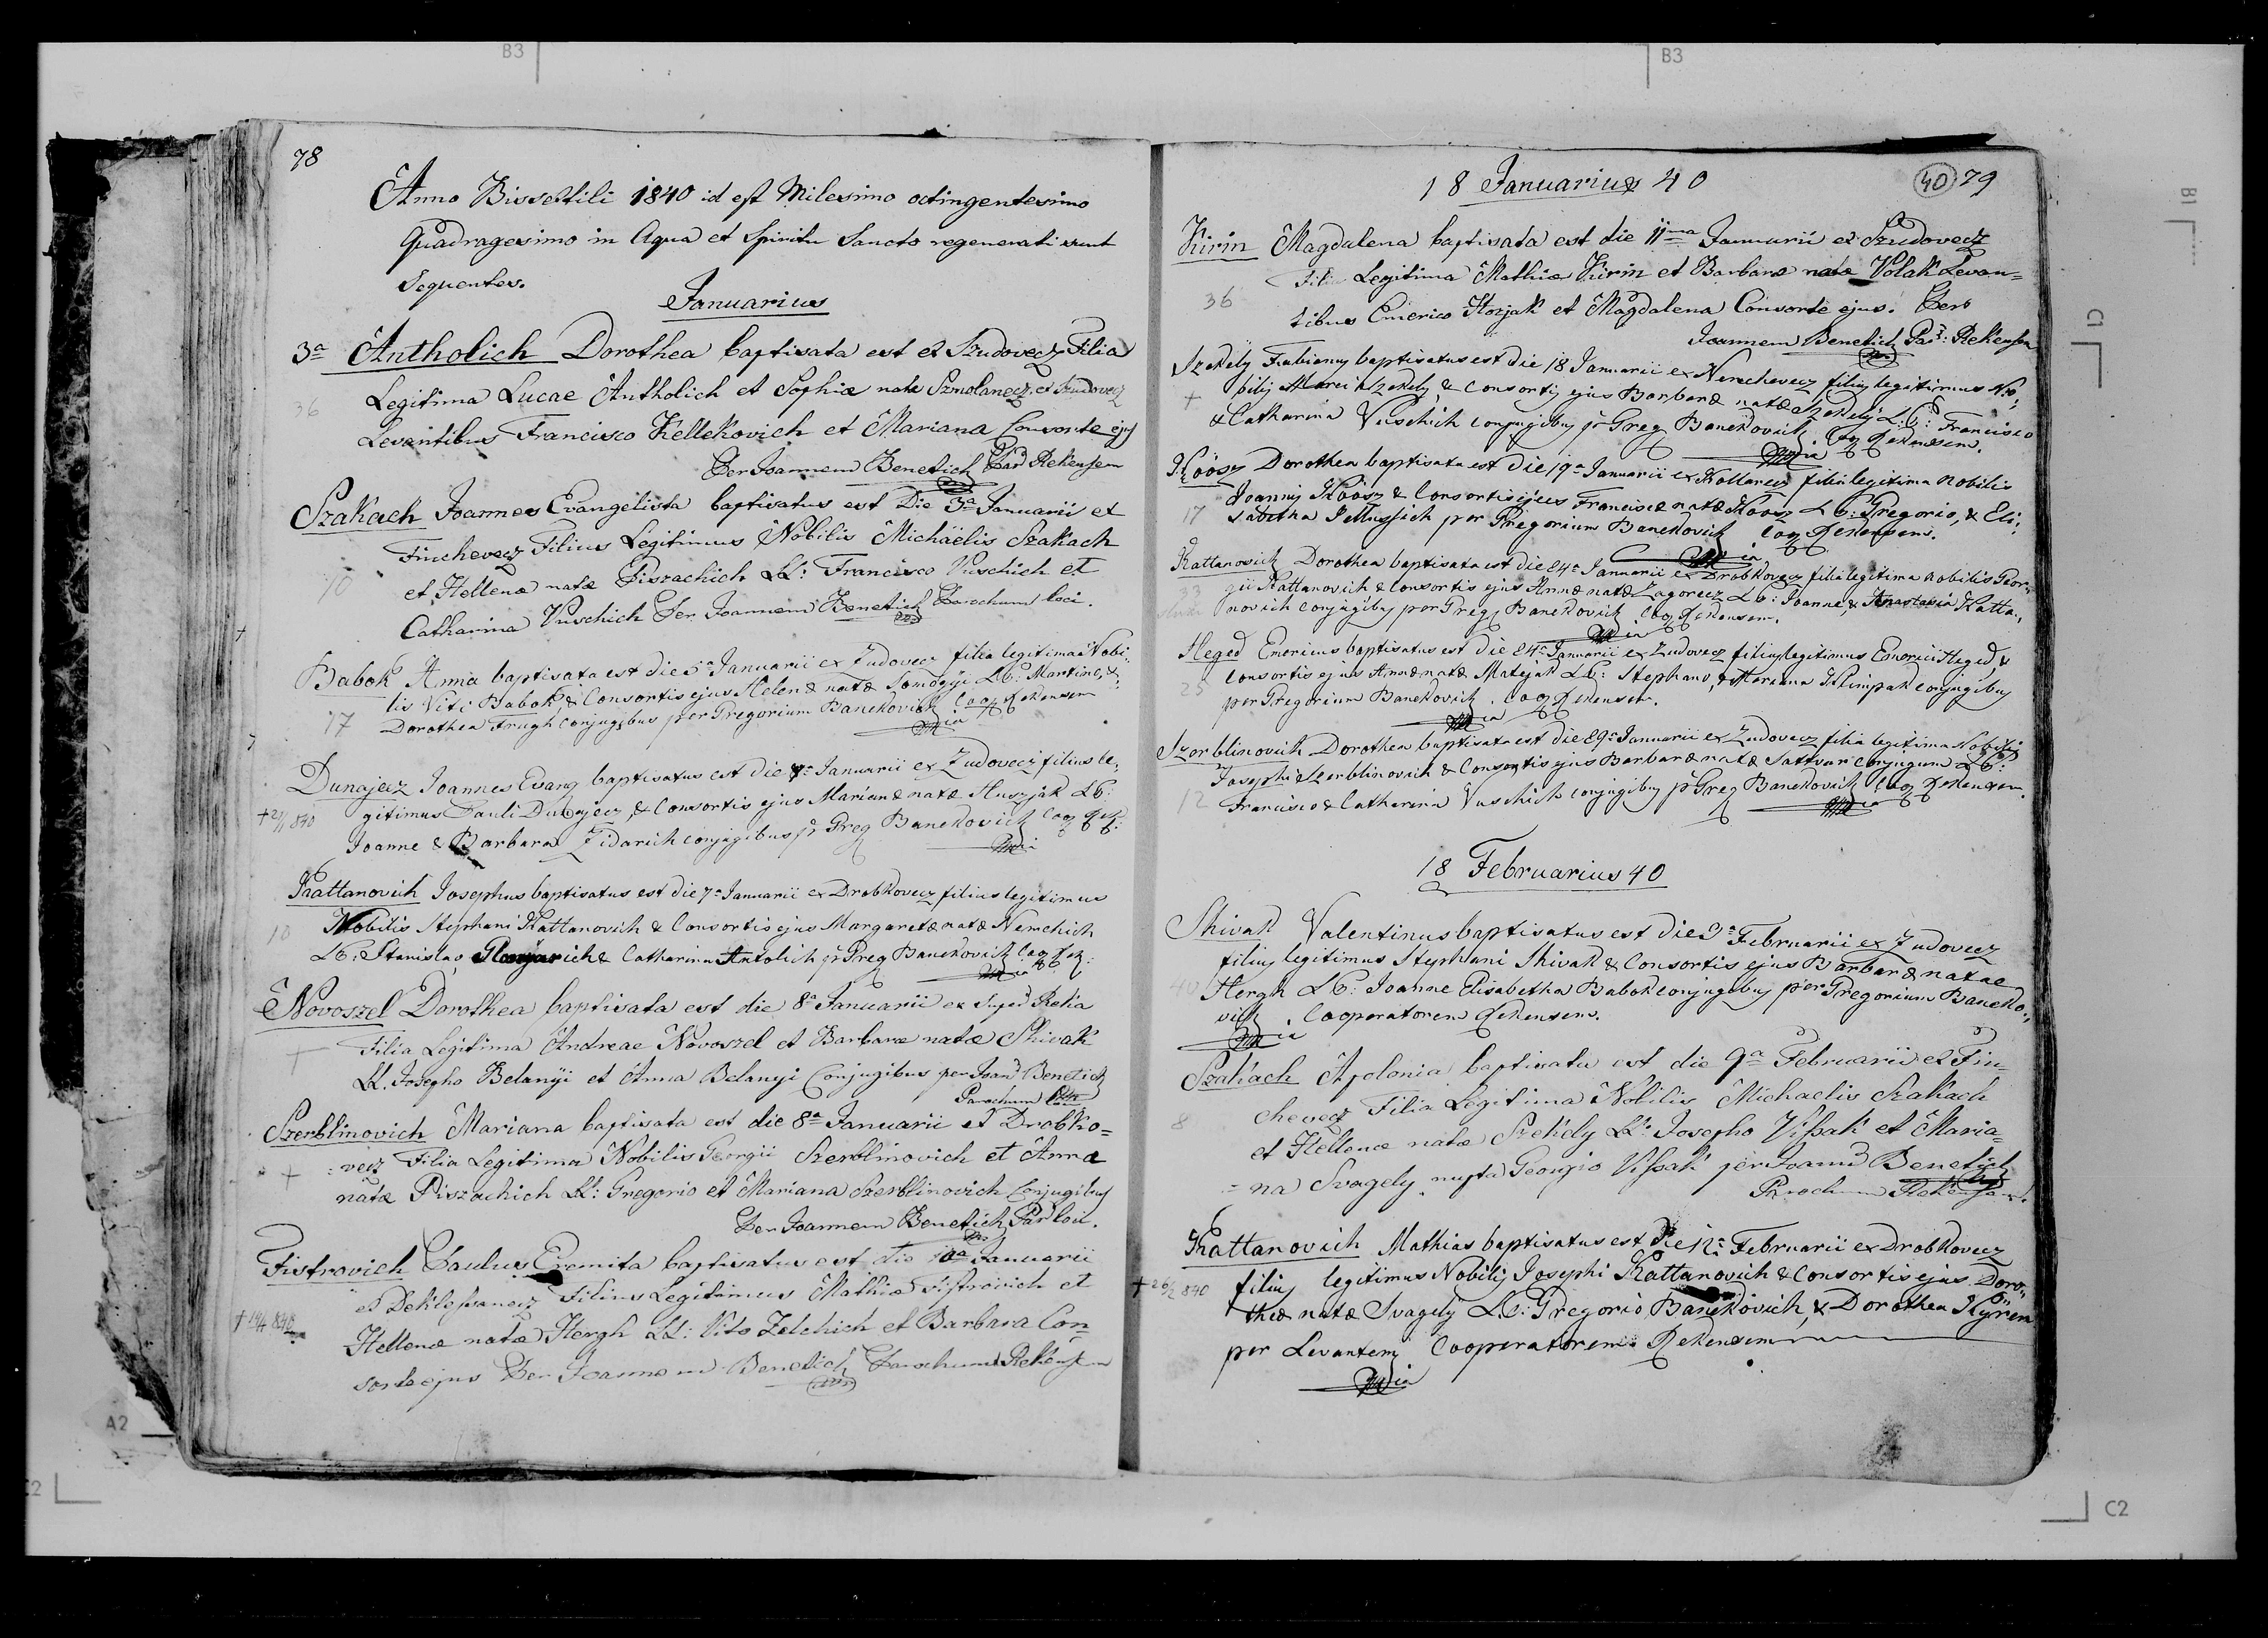 78
Anno Bissextili 1840 id est Milesimo octingentesimo
Quadragesimo in Aqua et Spiritu Sancto regenerati sunt
Sequentes.
Januarius
3a Antholich Dorothea baptisata est ex Szudovecz Filia
36 Legitima Lucae Antholich et Sophiæ natæ Szmolanecz ex Szudovecz
Levantibus Francisco Kellekovich et Mariana Consorte ejus
Per Joannem Benetich Par Rekensem
Szakach Joannes Evangelista baptisatus est Die 3a Januarii ex
Finchevecz Filius Legitimus Nobilis Michäelis Szakach
10 et Hellenæ natæ Piszachich LL: Francisco Vuschich et
Catharina Vuschich Per Joannem Benetich Parochum loci.
Babok Anna baptisata est die 5a Januarii ex Zudovecz filia legitima Nobi-
lis Viti Babok, & Consortis ejus Helenæ natæ Somogyi LL: Martino, &
17 Dorothea Frugh conjugibus per Gregorium Banekovich Coop Rekensem
Dunajecz Joannes Evang baptisatus est die 7a Januarii ex Zudovecz filius le-
† 21/1 840 gitimus Pauli Dunajecz, & Consortis ejus Marianæ natæ Huszjak LL:
Joanne & Barbara Zidarich conjugibus pr Greg Banekovich Coop Rek:
Kattanovich Josephus baptisatus est die 7a Januarii ex Drobkovecz filius legitimus
10 Nobilis Stephani Kattanovich & Consortis ejus Margaretæ natæ Nemchich
LL: Stanislao & Catharina Antolich pr Greg Banekovich Coop Rek:
Novoszel Dorothea baptisata est die 8a Januarii ex Rekia
† Filia Legitima Andreae Novoszel et Barbaræ natæ Shivak
LL. Josepho Belanÿi et Anna Belanyi Conjugibus per Joan Benetich
Parochum
Szerblinovich Mariana baptisata est die 8a Januarii ex Drobko=
† :vecz Filia Legitima Nobilis Georgii Szerblinovich et Anna
natæ Piszachich LL: Gregorio et Mariana Szerblinovich Conjugibus
Per Joannem Benetich Par loci.
Fistrovich Paulus Eremita baptisatus est die 10a Januarii
ex Deklessanecz Filius Legitimus Mathiæ Fistrovich et
Hellenæ natæ Hergh LL: Vito Zelchich et Barbara Con-
sorte ejus Per Joannem Benetich Parochum Rekensem
18 Januarius 40
40 79
Kirin Magdalena baptisata est die 11ma Januarii ex Szudovecz
Filia Legitima Mathiæ Kirin et Barbaræ natæ Volak Levan=
36 tibus Emerico Horjak et Magdalena Consorte ejus. Per
Joannem Benetich Par: Rekensem
Szekely Fabianus baptisatus est die 18 Januarii ex Nemchevecz filius legitimus No-
† bilis Szekely & Consortis ejus Barbaræ natæ Szekely LL: Francisco
& Catharina Vuschich conjugibus pr Greg Banekovich Coop Rekensem.
Köösz Dorothea baptisata est die 19a Januarii ex Kottarecz filia legitima nobilis
Joannis Köösz & Consortis ejus Franciscæ natæ Köösz LL: Gregorio, & Eli-
17 sabetha per Gregorium Banekovich Coop Rekensem.
Kattanovich Dorothea baptisata est die 24a Januarii ex Drobkovecz filia legitima nobilis Geor-
33 gii Kattanovich & Consortis ejus Annæ natæ Zagorecz LL: Joanne, & Anastasia Katta-
novich conjugibus per Greg Banekovich Coop Rekensem.
Heged Emericus baptisatus est die 24a Januarii ex Zudovecz filius legitimus Emerici Heged &
25 Consortis ejus Annæ natæ Matejak LL: Stephano, & Mariana Klimpak conjugibus
per Gregorium Banekovich Coop Rekensem.
Szerblinovich Dorothea baptisata est die 29a Januarii ex Zudovecz filia legitima Nobilis
Josephi Szerblinovich & Consortis ejus Barbaræ natæ Sattvar conjugum LL:
12 Francisco & Catharina Vuschich conjugibus pr Greg Banekovich Coop Rekensem.
18 Februarius 40
Shivak Valentinus baptisatus est die 3a Februarii ex Zudovecz
filius legitimus Stephani Shivak & Consortis ejus Barbaræ natae
40 Hergh LL: Joanne Elisabetha Babok conjugibus per Gregorium Baneko-
vich Cooperatorem Rekensem.
Szakach Apolonia baptisata est die 9a Februarii ex Fin-
8 chevecz Filia Legitima Nobilis Michaelis Szakach
et Hellenæ natæ Szekely LL: Josepho Vissak et Maria=
=na Svagely nupta Georgio Vissak per Joann Benetich
Parochum Rekensem.
Kattanovich Mathias baptisatus est Die 12a Februarii ex Drobkovecz
† 26/2 840 filius legitimus Nobilis Josephi Kattanovich & Consortis ejus Doro-
theæ natæ Svagely LL: Gregorio Banekovich, & Dorothea Kyren
per Levantem Cooperatorem Rekensem
B3
B3
B1
C1
A2
C2